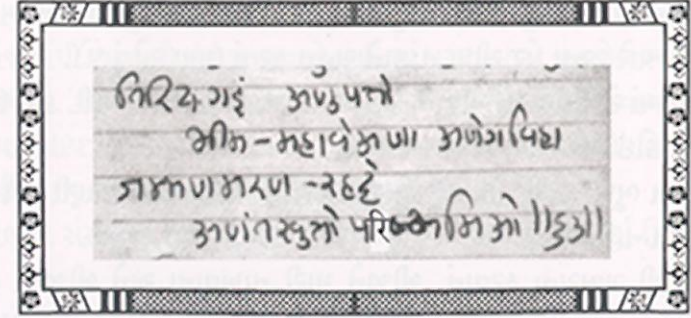 तिरियगइं अणुपत्तो
भीम-महावेअणा अणेगविहा
जम्मणमरण-रहट्टे
अणंतखुत्तो परिब्भमिओ